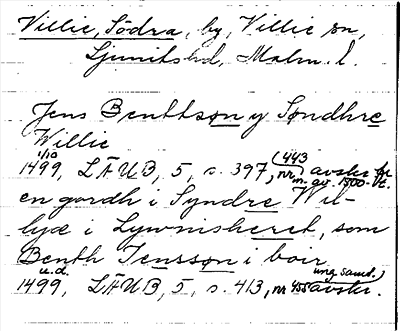 Villie, Södra, by, Villie sn,
Ljunits hd, Malm. l.
Jens Benttsson y Søndhre
Willie
1/10 1499, LÄUB, 5, s. 397, nr (443 avskr. fr.
m. av. 1500-t.
en gordh i Syndre Wil-
lyæ i Lywnisheret, som
Benth Jensson i boir
u.d. ung. samt.)
1499, LÄUB, 5, s. 413, nr 455 avskr.